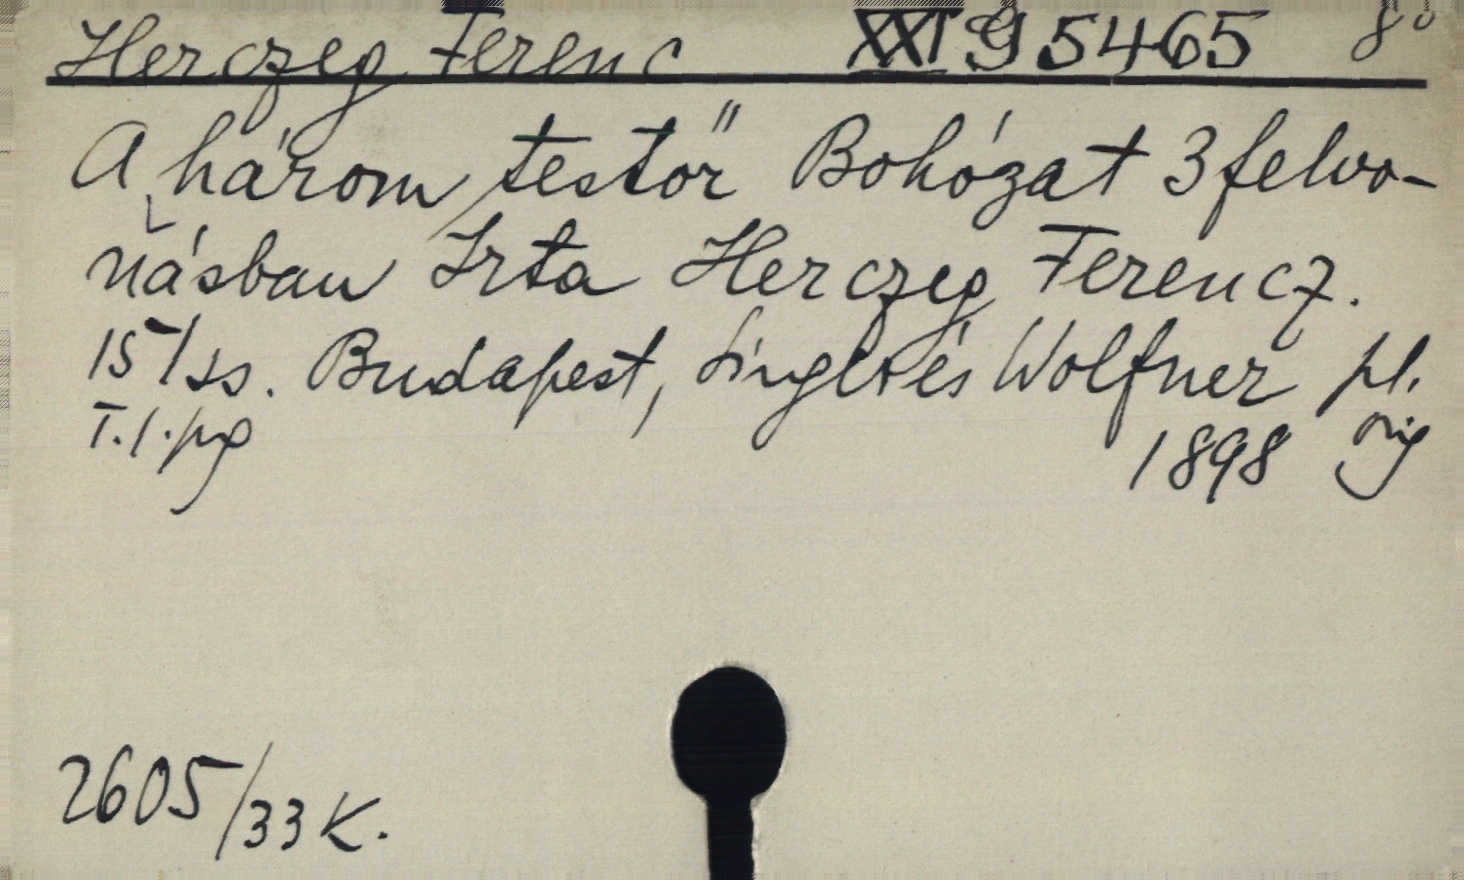 Herczeg Ferenc XXI 95465 8°
A három testőr Bohózat 3 felvo-
násban Irta Herczeg Ferencz.
151 ss. Budapest, Singer és Wolfner pl.
T. l. pg 1898 orig
2605/33 K.